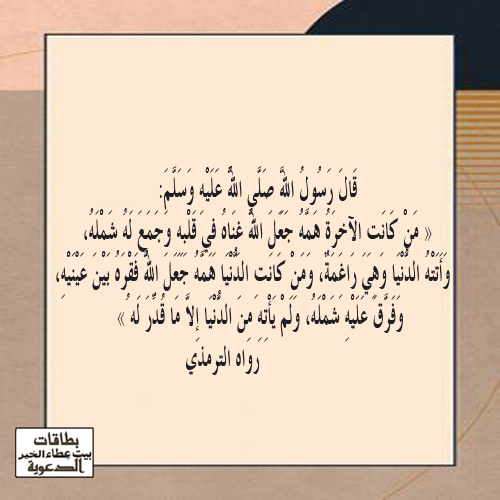 قَالَ رَسُولُ اللَّهِ صَلَّى اللَّهُ عَلَيْهِ وَسَلَّمَ:
« مَنْ كَانَت الآخرَةُ هَمَّهُ جَعَلَ اللَّهُ غنَاهُ في قَلْبه وَجَمَعَ لَهُ شَمْلَهُ،
وَأَتَتْهُ الدُّنْيَا وَهيَ رَاغمَةٌ، وَمَنْ كَانَت الدُّنْيَا هَمَّهُ جَعَلَ اللَّهُ فَقْرَهُ بَيْنَ عَيْنَيْه،
وَفَرَّقَ عَلَيْه شَمْلَهُ، وَلَمْ يَأْته منَ الدُّنْيَا إلاَّ مَا قُدِّرَ لَهُ »
رَوَاه الترمذي
بطاقات
بيت عطاء الخير
الدعوية